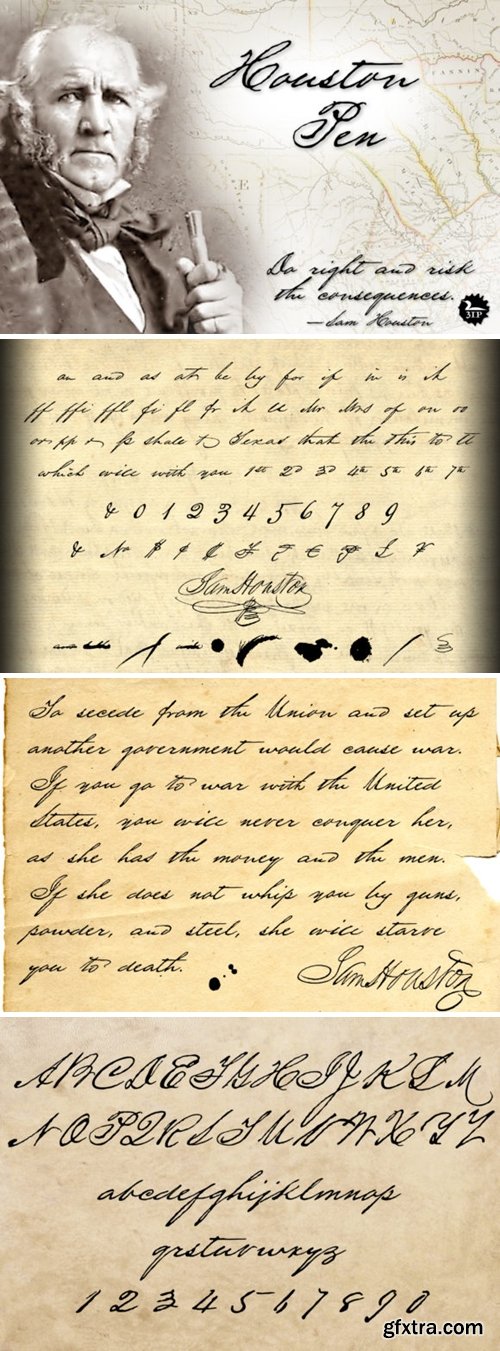 Houston
Pen
Do right and risk
the consequences.
—Sam Houston
3IP
an and as at be by for if in is it
ff ffi ffl fi fl
Mr Mrs of on oo
or pp
shall
Texas that the this to tt
which will with you 1st 2d 3d 4th 5th 6th 7th
& 0 1 2 3 4 5 6 7 8 9
& No $ ¢
€
£
Sam Houston
To secede from the Union and set up
another government would cause war.
If you go to war with the United
States, you will never conquer her,
as she has the money and the men.
If she does not whip you by guns,
powder, and steel, she will starve
you to death.
Sam Houston
A B C D E F G H I J K L M
N O P Q R S T U V W X Y Z
abcdefghijklmnop
qrstuvwxyz
1 2 3 4 5 6 7 8 9 0
gfxtra.com